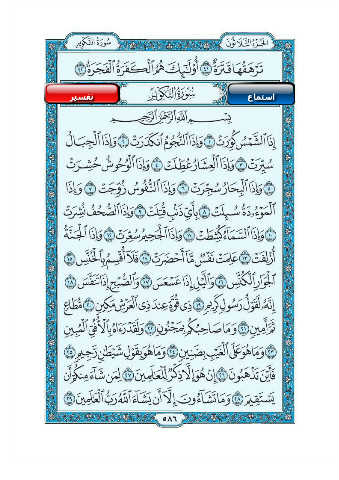 سُورَةُ التَّكْوِيرِ الجُزْءُ الثَّلَاثُونَ
تَرْهَقُهَا قَتَرَةٌ ٤١ أُولَٰئِكَ هُمُ الْكَفَرَةُ الْفَجَرَةُ ٤٢
تفسير سُورَةُ التَّكْوِيرِ استماع
بِسْمِ اللَّهِ الرَّحْمَٰنِ الرَّحِيمِ
إِذَا الشَّمْسُ كُوِّرَتْ ١ وَإِذَا النُّجُومُ انكَدَرَتْ ٢ وَإِذَا الْجِبَالُ
سُيِّرَتْ ٣ وَإِذَا الْعِشَارُ عُطِّلَتْ ٤ وَإِذَا الْوُحُوشُ حُشِرَتْ
٥ وَإِذَا الْبِحَارُ سُجِّرَتْ ٦ وَإِذَا النُّفُوسُ زُوِّجَتْ ٧ وَإِذَا
الْمَوْءُودَةُ سُئِلَتْ ٨ بِأَيِّ ذَنبٍ قُتِلَتْ ٩ وَإِذَا الصُّحُفُ نُشِرَتْ
١٠ وَإِذَا السَّمَاءُ كُشِطَتْ ١١ وَإِذَا الْجَحِيمُ سُعِّرَتْ ١٢ وَإِذَا الْجَنَّةُ
أُزْلِفَتْ ١٣ عَلِمَتْ نَفْسٌ مَّا أَحْضَرَتْ ١٤ فَلَا أُقْسِمُ بِالْخُنَّسِ ١٥
الْجَوَارِ الْكُنَّسِ ١٦ وَاللَّيْلِ إِذَا عَسْعَسَ ١٧ وَالصُّبْحِ إِذَا تَنَفَّسَ ١٨
إِنَّهُ لَقَوْلُ رَسُولٍ كَرِيمٍ ١٩ ذِي قُوَّةٍ عِندَ ذِي الْعَرْشِ مَكِينٍ ٢٠ مُّطَاعٍ
ثَمَّ أَمِينٍ ٢١ وَمَا صَاحِبُكُم بِمَجْنُونٍ ٢٢ وَلَقَدْ رَآهُ بِالْأُفُقِ الْمُبِينِ
٢٣ وَمَا هُوَ عَلَى الْغَيْبِ بِضَنِينٍ ٢٤ وَمَا هُوَ بِقَوْلِ شَيْطَانٍ رَّجِيمٍ ٢٥
فَأَيْنَ تَذْهَبُونَ ٢٦ إِنْ هُوَ إِلَّا ذِكْرٌ لِّلْعَالَمِينَ ٢٧ لِمَن شَاءَ مِنكُمْ أَن
يَسْتَقِيمَ ٢٨ وَمَا تَشَاءُونَ إِلَّا أَن يَشَاءَ اللَّهُ رَبُّ الْعَالَمِينَ ٢٩
٥٨٦